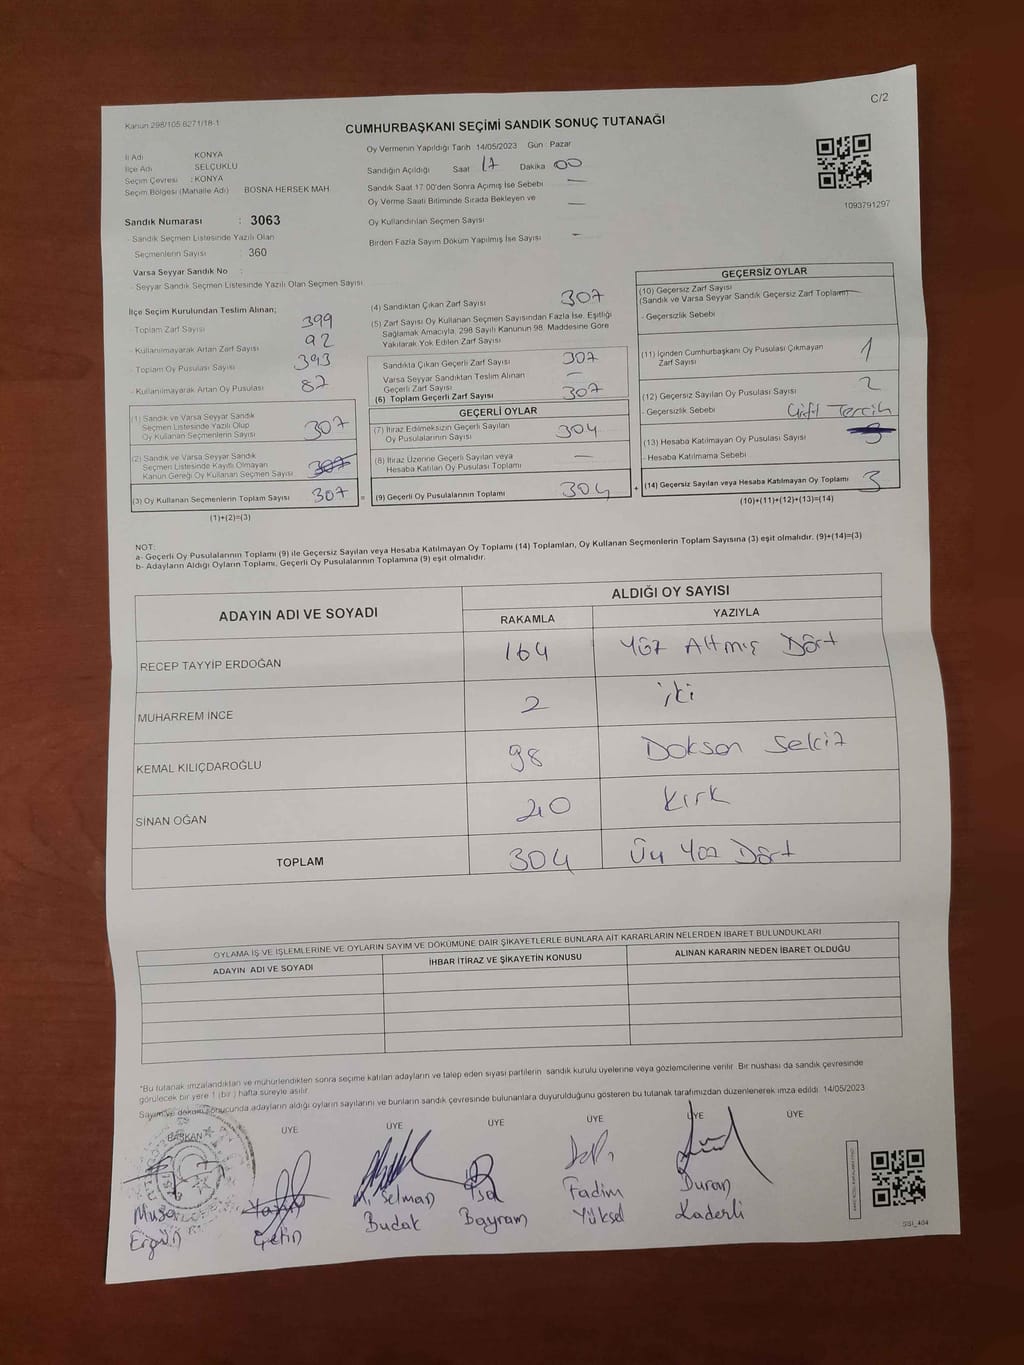 C/2
Kanun 298/105 6271/18-1
CUMHURBAŞKANI SEÇİMİ SANDIK SONUÇ TUTANAĞI
İl Adı KONYA
İlçe Adı SELÇUKLU
Seçim Çevresi : KONYA
Seçim Bölgesi (Mahalle Adı) BOSNA HERSEK MAH.
Oy Vermenin Yapıldığı Tarih 14/05/2023 Gün Pazar
Sandığın Açıldığı Saat 17 Dakika 00
Sandık Saat 17.00'den Sonra Açımış İse Sebebi —
Oy Verme Saati Bitiminde Sırada Bekleyen ve —
Oy Kullandırılan Seçmen Sayısı
Birden Fazla Sayım Döküm Yapılmış İse Sayısı —
1093791297
Sandık Numarası : 3063
- Sandık Seçmen Listesinde Yazılı Olan
Seçmenlerin Sayısı : 360
Varsa Seyyar Sandık No :
- Seyyar Sandık Seçmen Listesinde Yazılı Olan Seçmen Sayısı
İlçe Seçim Kurulundan Teslim Alınan;
- Toplam Zarf Sayısı 399
- Kullanılmayarak Artan Zarf Sayısı 92
- Toplam Oy Pusulası Sayısı 393
- Kullanılmayarak Artan Oy Pusulası 87
(1) Sandık ve Varsa Seyyar Sandık
Seçmen Listesinde Yazılı Olup
Oy Kullanan Seçmenlerin Sayısı 307
(2) Sandık ve Varsa Seyyar Sandık
Seçmen Listesinde Kayıtlı Olmayan
Kanun Gereği Oy Kullanan Seçmen Sayısı 307
(3) Oy Kullanan Seçmenlerin Toplam Sayısı 307 =
(1)+(2)=(3)
(4) Sandıktan Çıkan Zarf Sayısı 307
(5) Zarf Sayısı Oy Kullanan Seçmen Sayısından Fazla İse, Eşitliği
Sağlamak Amacıyla, 298 Sayılı Kanunun 98. Maddesine Göre
Yakılarak Yok Edilen Zarf Sayısı
Sandıkta Çıkan Geçerli Zarf Sayısı 307
Varsa Seyyar Sandıktan Teslim Alınan
Geçerli Zarf Sayısı —
(6) Toplam Geçerli Zarf Sayısı 307
GEÇERLİ OYLAR
(7) İtiraz Edilmeksizin Geçerli Sayılan
Oy Pusulalarının Sayısı 304
(8) İtiraz Üzerine Geçerli Sayılan veya
Hesaba Katılan Oy Pusulası Toplamı —
(9) Geçerli Oy Pusulalarının Toplamı 304 +
GEÇERSİZ OYLAR
(10) Geçersiz Zarf Sayısı
(Sandık ve Varsa Seyyar Sandık Geçersiz Zarf Toplamı) —
- Geçersizlik Sebebi
(11) İçinden Cumhurbaşkanı Oy Pusulası Çıkmayan
Zarf Sayısı 1
(12) Geçersiz Sayılan Oy Pusulası Sayısı 2
- Geçersizlik Sebebi Çift Tercih
(13) Hesaba Katılmayan Oy Pusulası Sayısı 3
- Hesaba Katılmama Sebebi
(14) Geçersiz Sayılan veya Hesaba Katılmayan Oy Toplamı 3
(10)+(11)+(12)+(13)=(14)
NOT:
a- Geçerli Oy Pusulalarının Toplamı (9) ile Geçersiz Sayılan veya Hesaba Katılmayan Oy Toplamı (14) Toplamları, Oy Kullanan Seçmenlerin Toplam Sayısına (3) eşit olmalıdır. (9)+(14)=(3)
b- Adayların Aldığı Oyların Toplamı, Geçerli Oy Pusulalarının Toplamına (9) eşit olmalıdır.
ADAYIN ADI VE SOYADI ALDIĞI OY SAYISI
RAKAMLA YAZIYLA
RECEP TAYYİP ERDOĞAN 164 Yüz Altmış Dört
MUHARREM İNCE 2 iki
KEMAL KILIÇDAROĞLU 98 Doksan Sekiz
SİNAN OĞAN 40 Kırk
TOPLAM 304 Üç Yüz Dört
OYLAMA İŞ VE İŞLEMLERİNE VE OYLARIN SAYIM VE DÖKÜMÜNE DAİR ŞİKAYETLERLE BUNLARA AİT KARARLARIN NELERDEN İBARET BULUNDUKLARI
ADAYIN ADI VE SOYADI İHBAR İTİRAZ VE ŞİKAYETİN KONUSU ALINAN KARARIN NEDEN İBARET OLDUĞU
*Bu tutanak imzalandıktan ve mühürlendikten sonra seçime katılan adayların ve talep eden siyasi partilerin sandık kurulu üyelerine veya gözlemcilerine verilir. Bir nushası da sandık çevresinde
görülecek bir yere 1 (bir) hafta süreyle asılır.
Sayım ve döküm sonucunda adayların aldığı oyların sayılarını ve bunların sandık çevresinde bulunanlara duyurulduğunu gösteren bu tutanak tarafımızdan düzenlenerek imza edildi. 14/05/2023
BAŞKAN ÜYE ÜYE ÜYE ÜYE ÜYE ÜYE
Musa Ergün
Çetin
Selman Budak
İsa Bayram
Fadim Yüksel
Duran Kaderli
SSI_404